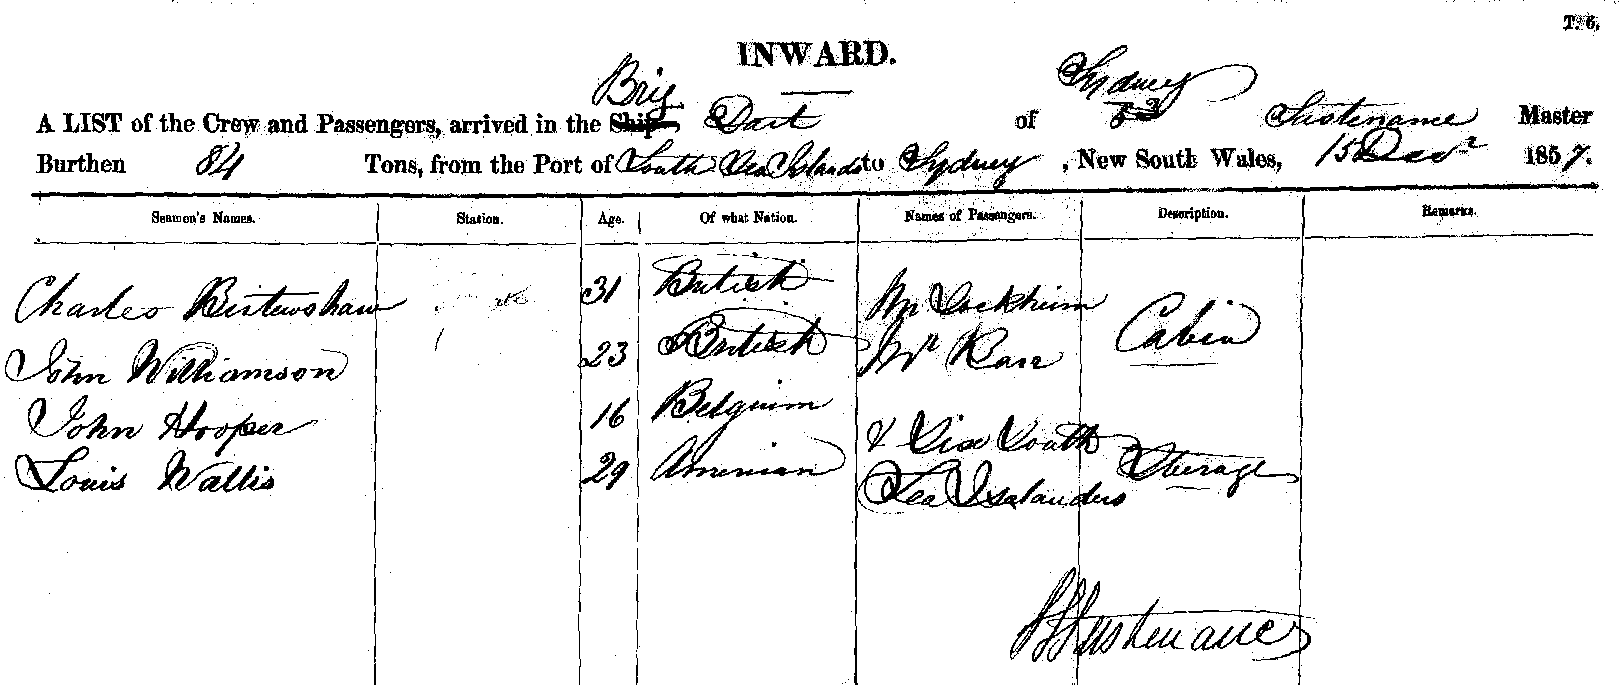 T. 6.
INWARD.
Brig Sydney
A LIST of the Crew and Passengers, arrived in the Ship, Dart of Sustenance Master
Burthen 84 Tons, from the Port of South Sea Islands to Sydney, New South Wales, 15 Decr 1857.
Seamen's Names. Station. Age. Of what Nation. Names of Passengers. Description. Remarks.
Charles Birtewshaw 31 British Mr Lockheim
John Williamson 23 British Mr Rarr Cabin
John Hooper 16 Belguim
Louis Wallis 29 & Six South Sterage
Sea Isalanders
Sustenance